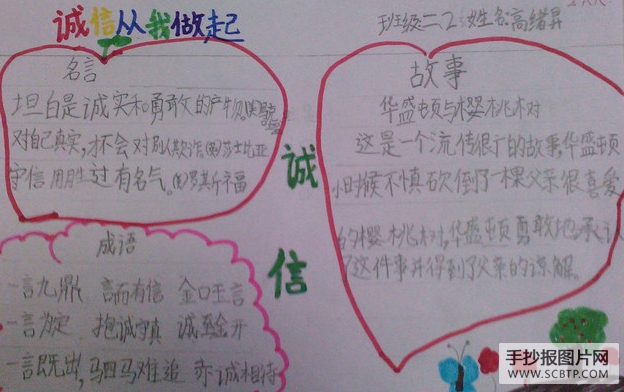 诚信从我做起
班级二、2 姓名:高绪昇
名言
坦白是诚实和勇敢的产物。(美)
对自己真实,才不会对别人欺诈。(英)莎士比亚
守信用胜过有名气。(美)罗斯福
诚
信
成语
一言九鼎 言而有信 金口玉言
一言为定 抱诚守真 诚至金开
一言既出,驷马难追 赤诚相待
故事
华盛顿与樱桃树
这是一个流传很广的故事,华盛顿
小时候不慎砍倒了一棵父亲很喜爱
的樱桃树,华盛顿勇敢地承认
了这件事并得到了父亲的谅解。
手抄报图片网
WWW.SCBTP.COM